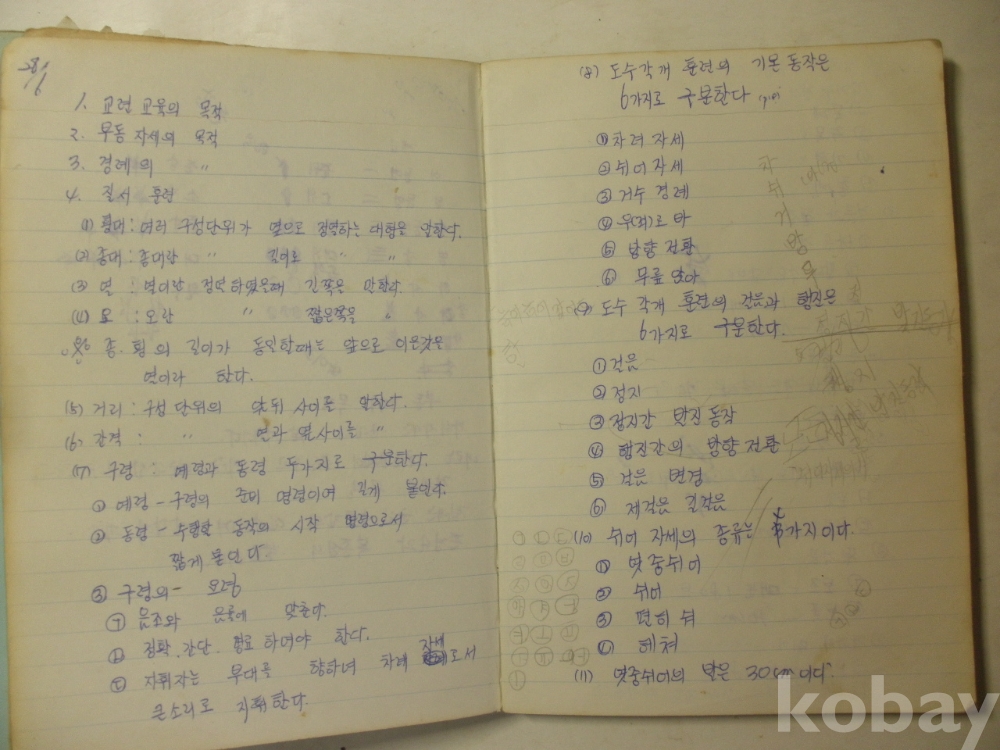 28/6
1. 교련 교육의 목적
2. 부동 자세의 목적
3. 경례의 〃
4. 집서 훈련
(1) 횡대 : 여러 구성단위가 옆으로 정렬하는 대형을 말한다.
(2) 종대 : 종대란 〃 길이로 〃 〃
(3) 열 : 열이란 정면 하였을때 긴쪽을 말한다
(4) 오 : 오란 〃 짧은쪽을 〃
종. 횡의 길이가 동일할때는 앞으로 이은것은
열이라 한다.
(5) 거리 : 구성 단위의 앞뒤 사이를 말한다.
(6) 간격 : 〃 열과 열사이를 〃
(7) 구령 : 예령과 동령 두가지로 구분한다.
① 예령 - 구령의 준비 명령이며 길게 붙인다.
② 동령 - 수행할 동작의 시작 명령으로서
짧게 붙인다
③ 구령의 - 요령
㉠ 음조와 음률에 맞춘다.
㉡ 정확. 간단. 명료 하여야 한다.
㉢ 지휘자는 부대를 향하여 차례 자세로서
큰소리로 지휘한다.
(8) 도수각개 훈련의 기본 동작은
6가지로 구분한다
① 차려 자세
② 쉬어 자세
③ 거수 경례
④ 우(좌)로 봐
⑤ 방향 전환
⑥ 무릎 앉아
(9) 도수 각개 훈련의 걸음과 행진은
6가지로 구분한다.
① 걸음
② 정지
③ 정지간 반진 동작
④ 행진간의 방향 전환
⑤ 걸음 변경
⑥ 제걸음 길걸음
(10) 쉬어 자세의 종류는 가지이다.
① 열중쉬어
② 쉬어
③ 편히 쉬
④ 헤쳐
(11) 열중쉬어의 발은 30cm이다.
kobay